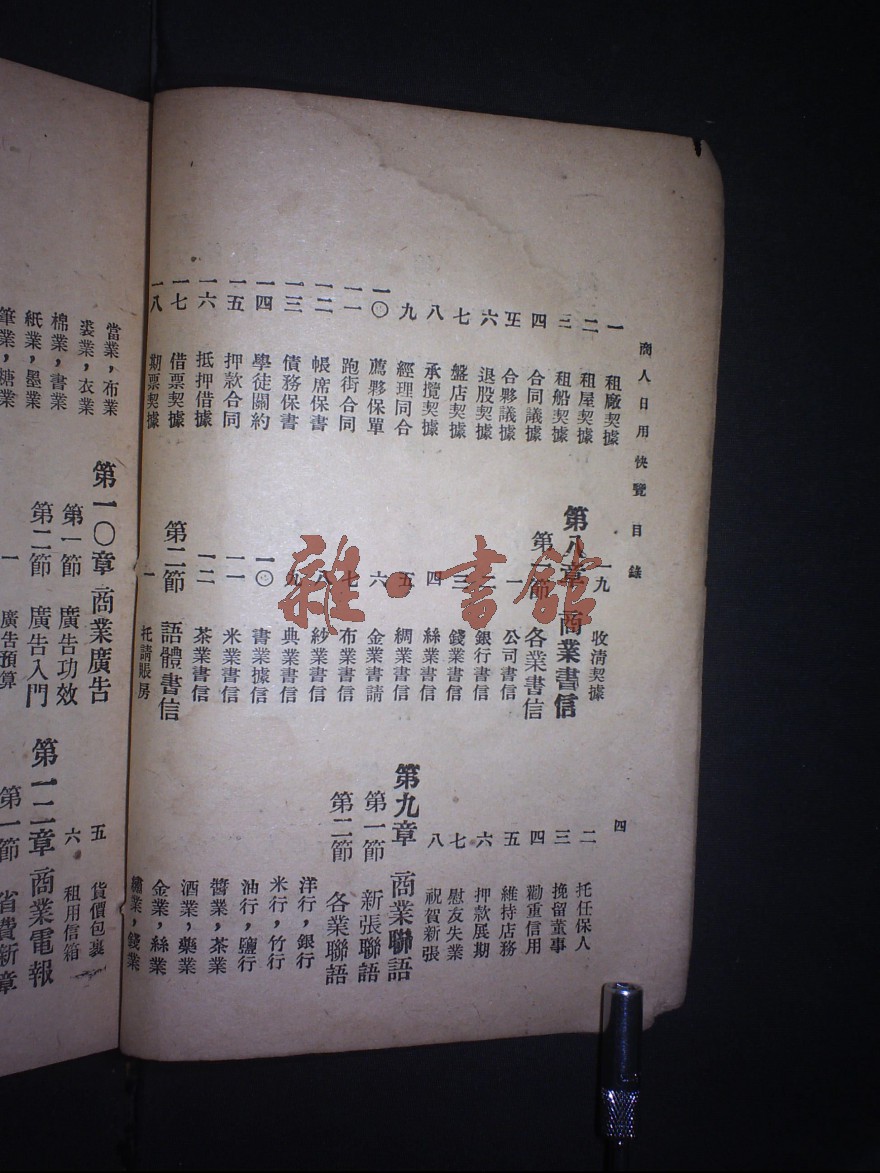 商人日用快覽 目錄
四
一 租廠契據
二 租屋契據
三 租船契據
四 合同議據
五 合夥議據
六 退股契據
七 盤店契據
八 承攬契據
九 經理同合
一〇 薦夥保單
一一 跑街合同
一二 帳席保書
一三 債務保書
一四 學徒關約
一五 押款合同
一六 抵押借據
一七 借票契據
一八 期票契據
一九 收清契據
第八章 商業書信
第一節 各業書信
一 公司書信
二 銀行書信
三 錢業書信
四 絲業書信
五 綢業書信
六 金業書請
七 布業書信
八 紗業書信
九 典業書信
一〇 書業據信
一一 米業書信
一二 茶業書信
第二節 語體書信
一 托請賬房
二 托任保人
三 挽留董事
四 勸重信用
五 維持店務
六 押款展期
七 慰友失業
八 祝賀新張
第九章 商業聯語
第一節 新張聯語
第二節 各業聯語
洋行，銀行
米行，竹行
油行，鹽行
醬業，茶業
酒業，藥業
金業，絲業
繡業，錢業
當業，布業
裘業，衣業
棉業，書業
紙業，墨業
筆業，糖業
第一〇章 商業廣告
第一節 廣告功效
第二節 廣告入門
一 廣告預算
五 貨價包裹
六 租用信箱
第一二章 商業電報
第一節 省費新章
雜·書館